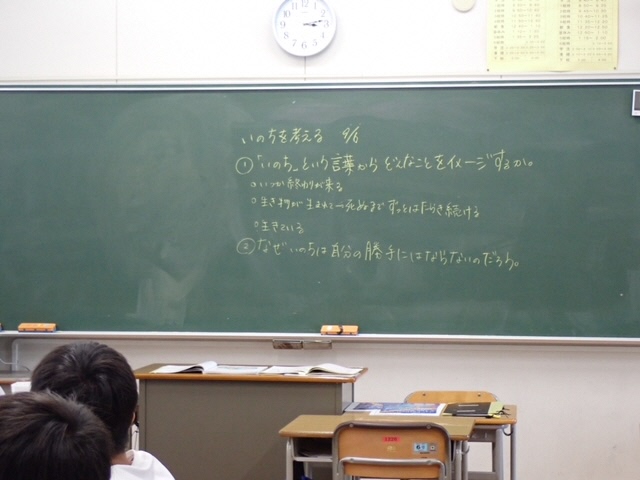 いのちを考える 9/6
①「いのち」という言葉からどんなことをイメージするか。
○いつか終わりが来る
○生き物が生まれて→死ぬまでずっとはたらき続ける
○生きている
②なぜいのちは自分の勝手にはならないのだろう。